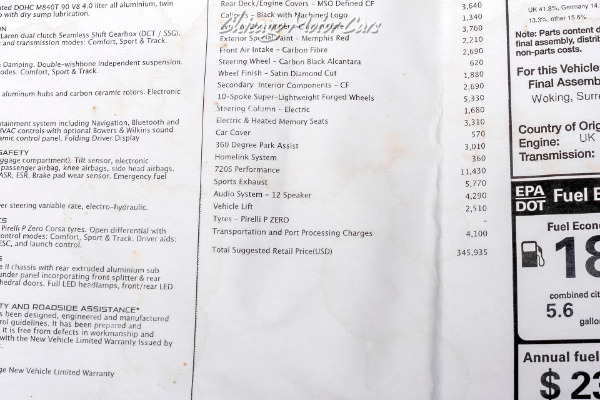 ted DOHC M840T 90 V8 4.0 liter all aluminium, twin
with dry sump lubrication.
Laren dual clutch Seamless Shift Gearbox (DCT / SSG),
and transmission modes: Comfort, Sport & Track.
Damping. Double-wishbone independent suspension.
odes: Comfort, Sport & Track.
aluminum hubs and carbon ceramic rotors. Electronic
tainment system including Navigation, Bluetooth and
HVAC controls with optional Bowers & Wilkins sound
amic control panel. Folding Driver Display
SAFETY
ggage compartment). Tilt sensor, electronic
passenger airbag, knee airbags, side head airbags.
ASR, ESR. Brake pad wear sensor. Emergency fuel
er steering variable rate, electro-hydraulic.
CS
Pirelli P Zero Corsa tyres. Open differential with
control modes: Comfort, Sport & Track. Driver aids:
ESC, and launch control.
e II chassis with rear extruded aluminium sub
under panel incorporating front splitter & rear
hedral doors. Full LED headlamps, front/rear LED
TY AND ROADSIDE ASSISTANCE*
as been designed, engineered and manufactured
ol guidelines. It has been prepared and
It is free from defects in workmanship and
with the New Vehicle Limited Warranty Issued by
ge New Vehicle Limited Warranty
Rear Deck/Engine Covers - MSO Defined CF 3,640
- Black with Machined Logo 1,340
3,760
Exterior Special Paint - Memphis Red 2,710
Front Air Intake - Carbon Fibre 2,690
Steering Wheel - Carbon Black Alcantara 620
Wheel Finish - Satin Diamond Cut 1,880
Secondary Interior Components - CF 2,690
10-Spoke Super-Lightweight Forged Wheels 5,330
Steering Column - Electric 1,680
Electric & Heated Memory Seats 3,310
Car Cover 570
360 Degree Park Assist 3,010
Homelink System 360
720S Performance 11,430
Sports Exhaust 5,770
Audio System - 12 Speaker 4,290
Vehicle Lift 2,510
Tyres - Pirelli P ZERO -
Transportation and Port Processing Charges 4,100
Total Suggested Retail Price(USD) 345,935
Motor Cars
UK 41.8%, Germany 14.
13.3%, other 15.6%
Note: Parts content d
final assembly, distri
non-parts costs.
For this Vehicle
Final Assemb
Woking, Surre
Country of Orig
Engine: UK
Transmission:
EPA
DOT Fuel E
Fuel Econo
18
combined cit
5.6
gallo
Annual fuel
$23